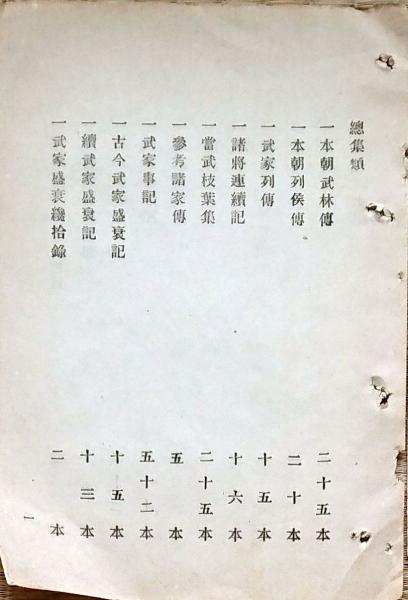 總集類
一本朝武林傳 二十五本
一本朝列侯傳 二十本
一武家列傳 十五本
一諸將連續記 十六本
一當武枝葉集 二十五本
一參考諸家傳 五本
一武家事記 五十二本
一古今武家盛衰記 十五本
一續武家盛衰記 十三本
一武家盛衰纔拾錄 二本
一